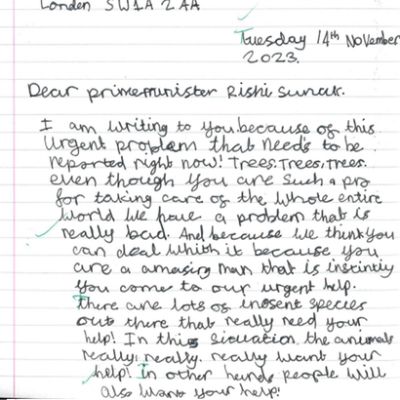 London SW1A 2AA
Tuesday 14th November
2023.
Dear primeminister Rishi Sunak.
I am writing to you because of this
urgent problem that needs to be
reported right now! Trees. Trees. Trees.
even though you are such a pro
for taking care of the whole entire
world we have a problem that is
really bad. And because we think you
can deal whith it because you
are a amasing man that is instintly
you come to our urgent help.
There are lots of inosent species
out there that really need your
help! In this siouation the animals
really, really. really want your
help! In other hands people will
also want your help!